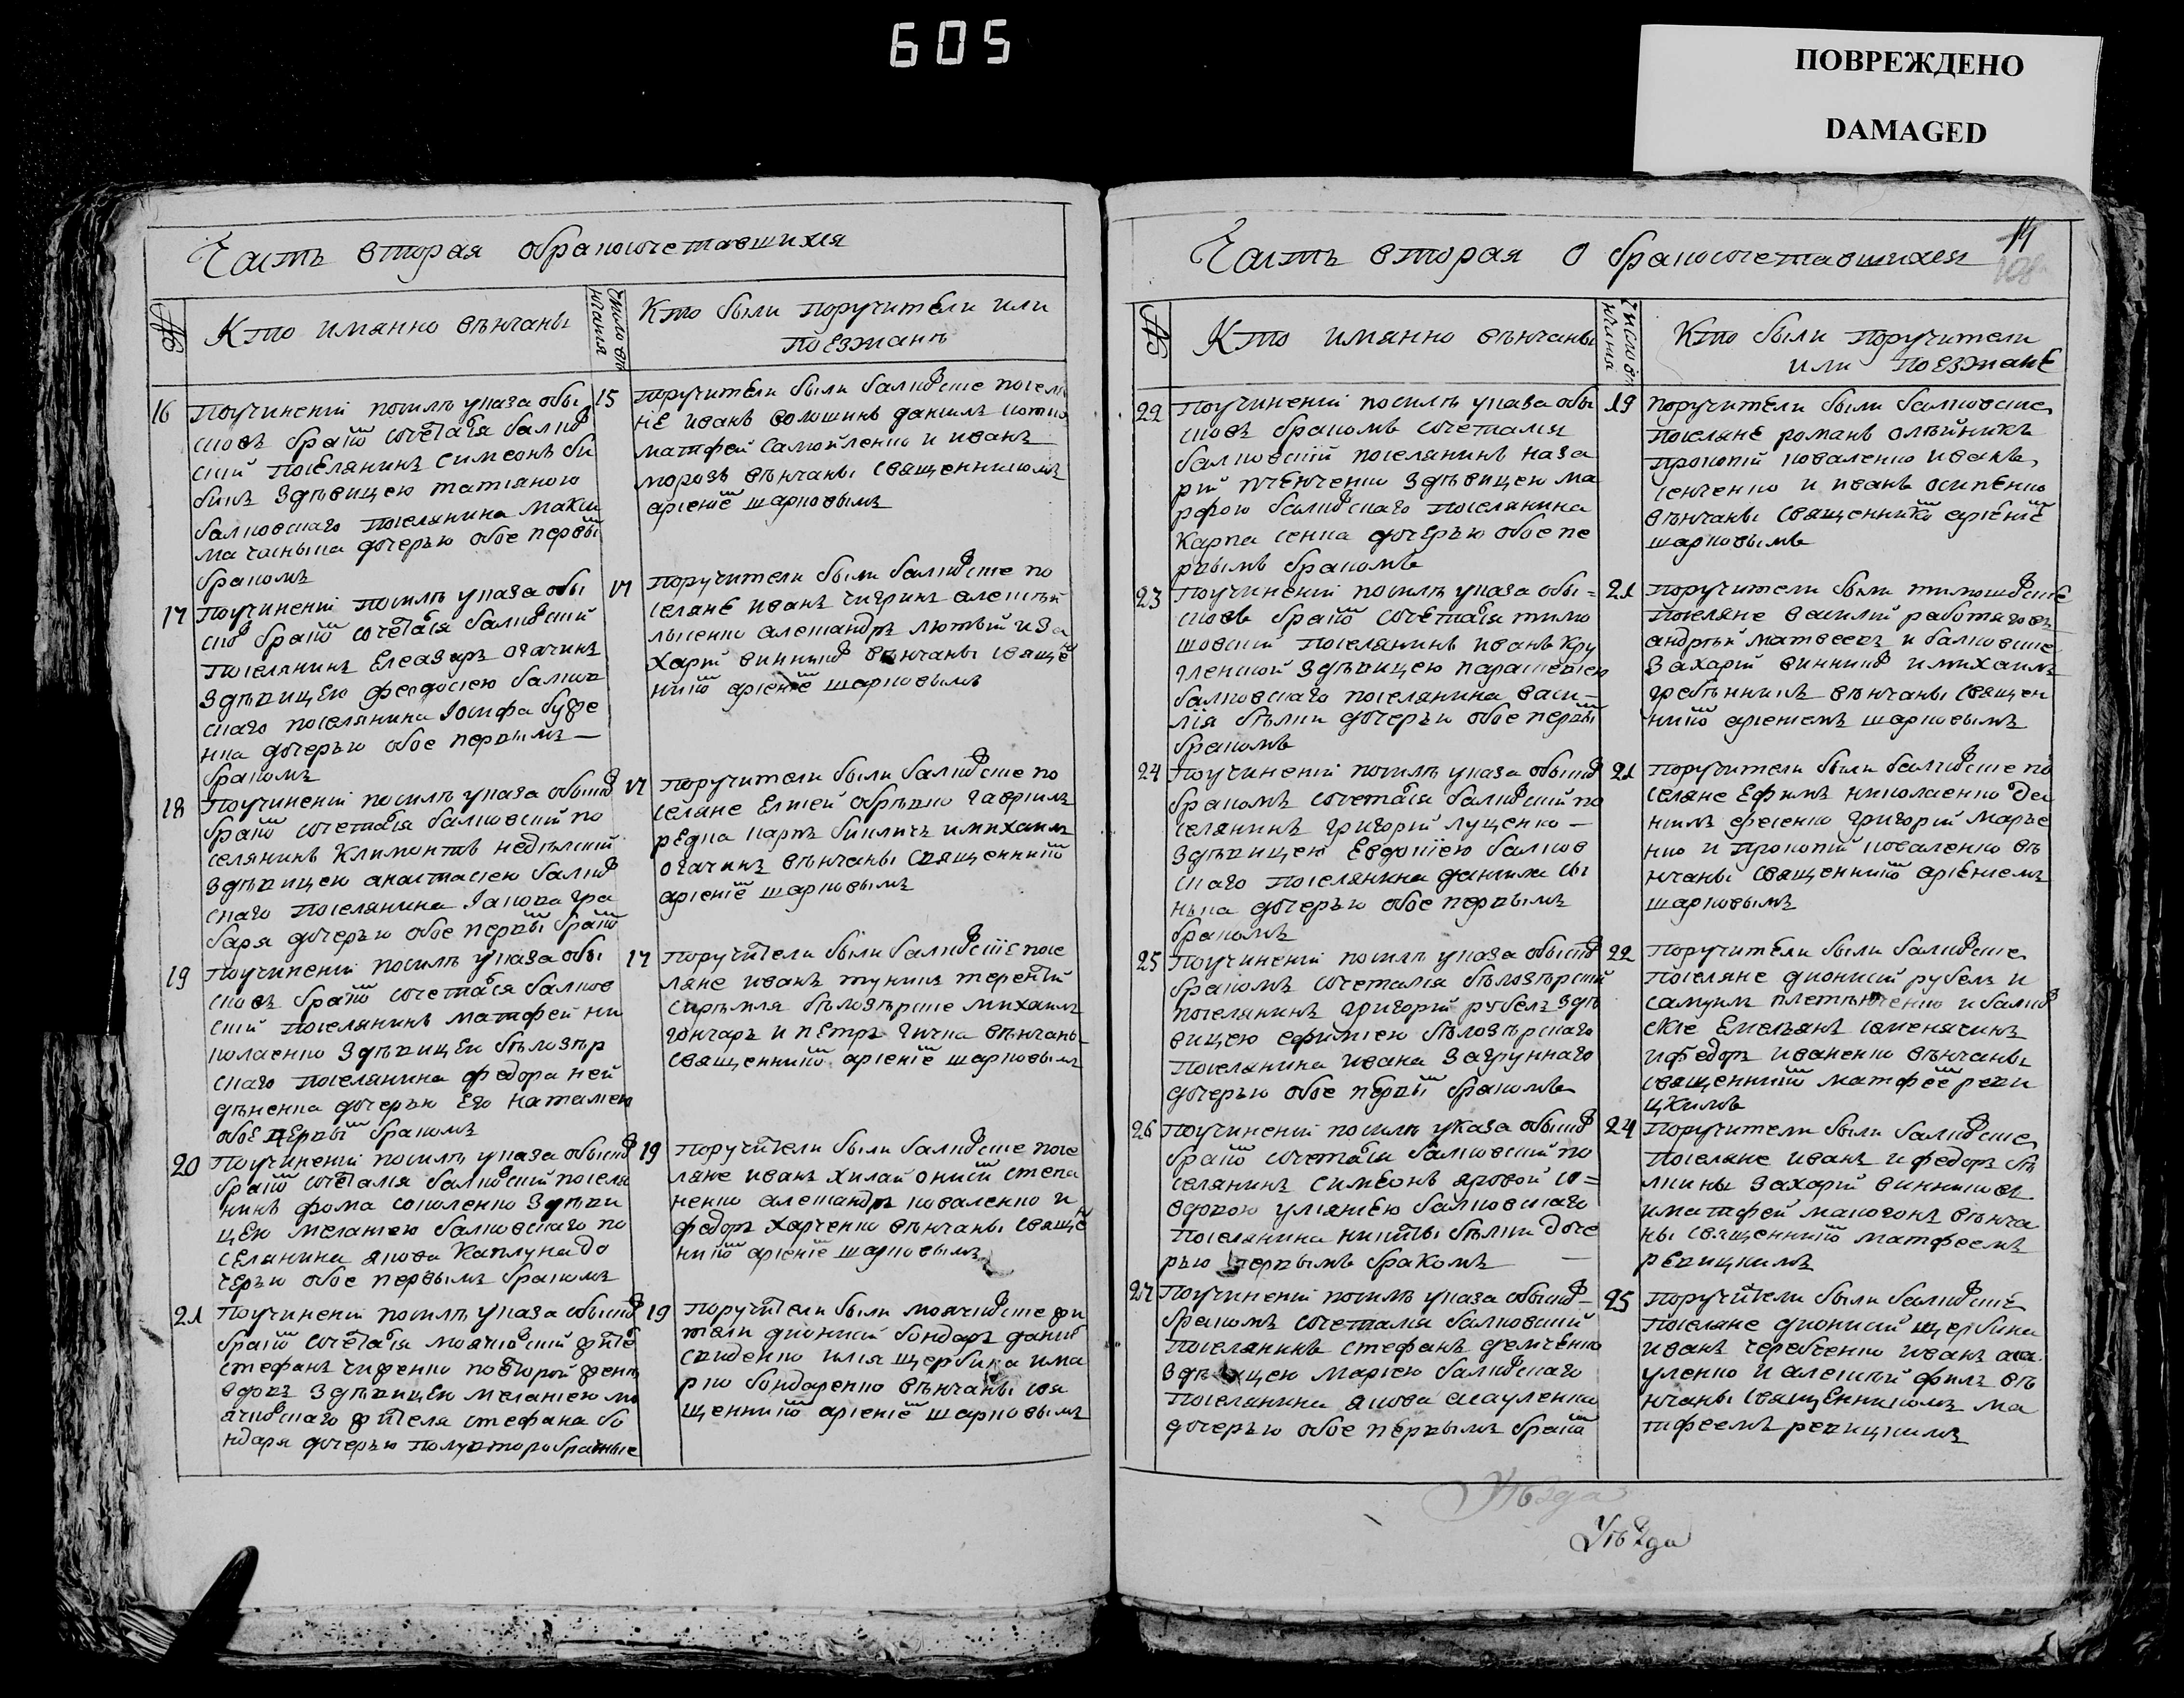 605
ПОВРЕЖДЕНО
DAMAGED
Часть вторая о бракосочетавшихся
№
Кто имянно вѣнчаны
Число вѣ
нчания
Кто были поручители или
поезжанѣ
16
Поучинении посилѣ указа обы
сковъ брако сочетался балко
ский поселянинъ Симеонъ Би
бикъ здѣвицею татіяною
балковскаго поселянина Макси
ма дочерью обое первы
бракомъ
15
поручители были балковские поселя
не иванъ волошинъ данилъ
матфей самойленко и иванъ
морозъ вѣнчаны священникомъ
арсение шарковымъ
17
Поучинении посилѣ указа обы
ско брако сочетался балковский
поселянинъ Елеазаръ огачинъ
здѣвицею феодосиею балков
скаго поселянина Іосифа
нка дочерью обое первымъ
бракомъ
17
поручители были балковские по
селяне иванъ чигринъ алексѣй
лысенко александръ лютый и за
харий винник вѣнчаны свяще
нико арсение шарковымъ
18
Поучинении посилѣ указа обыско
брако сочетался балковский по
селянинъ Климонтий недѣлский
здѣвицею анастасиею балков
скаго поселянина Іакова гра
баря дочерью обое первы брако
17
поручители были балковские по
селяне Елисей обрѣзко гавриилъ
редка карпъ кикличъ и михаилъ
огачинъ вѣнчаны священнико
арсение шарковымъ
19
Поучинении посилѣ указа обы
сковъ брако сочетался балков
ский поселянинъ матфей ни
колаенко здѣвицеи бѣлозѣр
скаго поселянина федора ней
дѣненка дочерью его наталиею
обое первы бракомъ
17
поручители были балковские посе
ляне иванъ туникъ терентий
сирѣмля бѣлозѣрские михаилъ
гончаръ и петръ гичка вѣнчаны
священнико арсение шарковымъ
20
Поучинении посилѣ указа обыско
брако сочетался балковский поселя
нинъ фома соколенко здѣви
цею меланиею балковскаго по
селянина якова Каплуна до
черью обое первымъ бракомъ
19
поручители были балковские посе
ляне иванъ хилай они степа
ненко александръ коваленко и
федоръ харченко вѣнчаны свяще
нико арсение шарковымъ
21
Поучинении посилѣ указа обыско
брако сочетался моячковский жите
стефанъ повторой жени
вдовъ здѣвицею меланиею мо
ячковскаго жителя стефана бо
ндаря дочерью полуторобрачные
19
поручители были моячковские жи
тели дионисий бондаръ данило
свиденко илия щербина и ма
рко бондаренко вѣнчаны свя
щеннико арсение шарковымъ
Часть вторая о бракосочетавшихся
11
108
№
Кто имянно вѣнчаны
Число вѣ
нчания
Кто были поручители
или поезжанѣ
22
Поучинении посилѣ указа обы
сковъ бракомъ сочетался
балковский поселянинъ наза
рий здѣвицею ма
рфою балковскаго поселянина
Карпа сенка дочерью обое пе
рвымъ бракомъ
19
поручители были балковские
поселяне романъ олѣйникъ
прокопий коваленко иванъ
сенченко и иванъ осипенко
вѣнчаны священнико арсение
шарковымъ
23
Поучинении посилѣ указа обы=
сковъ брако сочетался тимо
шовский поселянинъ иванъ кру
гленкой здѣвицею параскевиею
балковскаго поселянина васи-
лія бѣлки дочерью обое первы
бракомъ
21
поручители были тимошовские
поселяне василий работяговъ
андрѣй матвеевъ и балковские
захарий винник и михаилъ
гребѣнникъ вѣнчаны священ
нико арсениемъ шарковымъ
24
Поучинении посилѣ указа обыско
бракомъ сочетался балковский по
селянинъ григорий лущенко -
здѣвицею Евдокиею балков
скаго поселянина данила сы
нька дочерью обое первымъ
бракомъ
21
поручители были балковские по
селяне Ефимъ николаенко
григорий марче
нко и прокопий коваленко вѣ
нчаны священнико арсениемъ
шарковымъ
25
Поучинении посилѣ указа обыско
бракомъ сочетался бѣлозѣрский
поселянинъ григорий рубель здѣ
вицею ефимиею бѣлозѣрскаго
поселянина ивана загруннаго
дочерью обое первы бракомъ
22
поручители были балковские
поселяне дионисий рубель и
самуилъ плетѣнченко и балко
ские Емельянъ семенячинъ
и федоръ иваненко вѣнчаны
священнико матфее реви
цкимъ
26
Поучинении посилѣ указа обыско
брако сочетался балковский по
селянинъ симеонъ яровой со=
вдовою улияниею балковскаго
поселянина никиты бѣлки доче
рью первымъ бракомъ
24
поручители были балковские
поселяне иванъ и федоръ бѣ
лкины захарий винниковъ
и матфей макогонъ вѣнча
ны священнико матфеемъ
ревицкимъ
27
Поучинении посилѣ указа обыско
бракомъ сочетался балковский
поселянинъ стефанъ демченко
здѣвицею мариею балковскаго
поселянина якова асауленка
дочерью обое первымъ брако
25
поручители были балковские
поселяне дионисий щербина
иванъ чередченко иванъ аса
уленко и алексѣй филъ вѣ
нчаны священникомъ ма
тфеемъ ревицкимъ
Уѣзда
Уѣзда